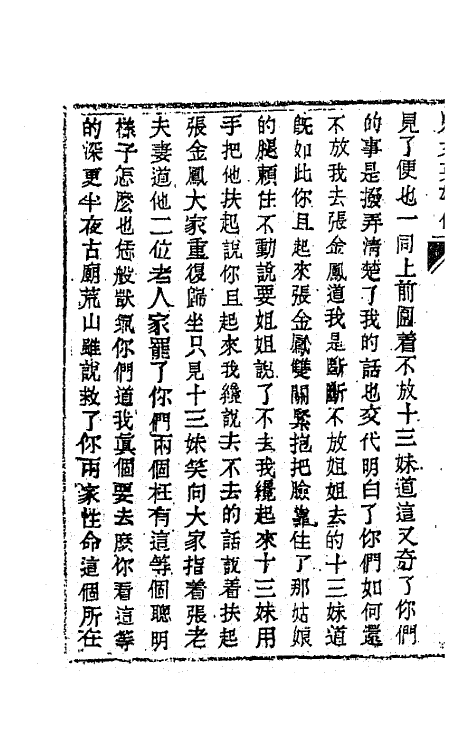 見了便也一同上前圍着不放十三妹道這又奇了你們
的事是撥弄清楚了我的話也交代明白了你們如何還
不放我去張金鳳道我是斷斷不放姐姐去的十三妹道
旣如此你且起來張金鳳雙關緊抱把臉靠住了那姑娘
的腿賴住不動說要姐姐說了不去我纔起來十三妹用
手把他扶起說你且起來我纔說去不去的話說着扶起
張金鳳大家重復歸坐只見十三妹笑向大家指着張老
夫妻道他二位老人家罷了你們兩個枉有這等個聰明
樣子怎麽也恁般獃氣你們道我眞個要去麽你看這等
的深更半夜古廟荒山雖說救了你兩家性命這個所在